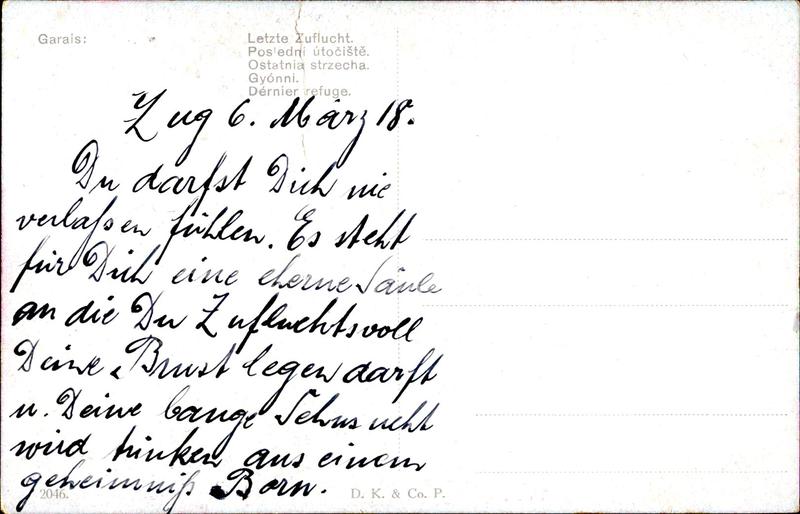 Garais:
Letzte Zuflucht.
Poslední útočiště.
Ostatnia strzecha.
Gyónni.
Dérnier refuge.
Zug 6. März 18.
Du darfst Dich nie
verlaßen fühlen. Es steht
für Dich eine eherne Säule
an die Du Zufluchtsvoll
Deine Brust legen darft
u. Deine bange Sehnsucht
wird trinken aus einem
geheimniß Born.
2046.
D. K. & Co. P.